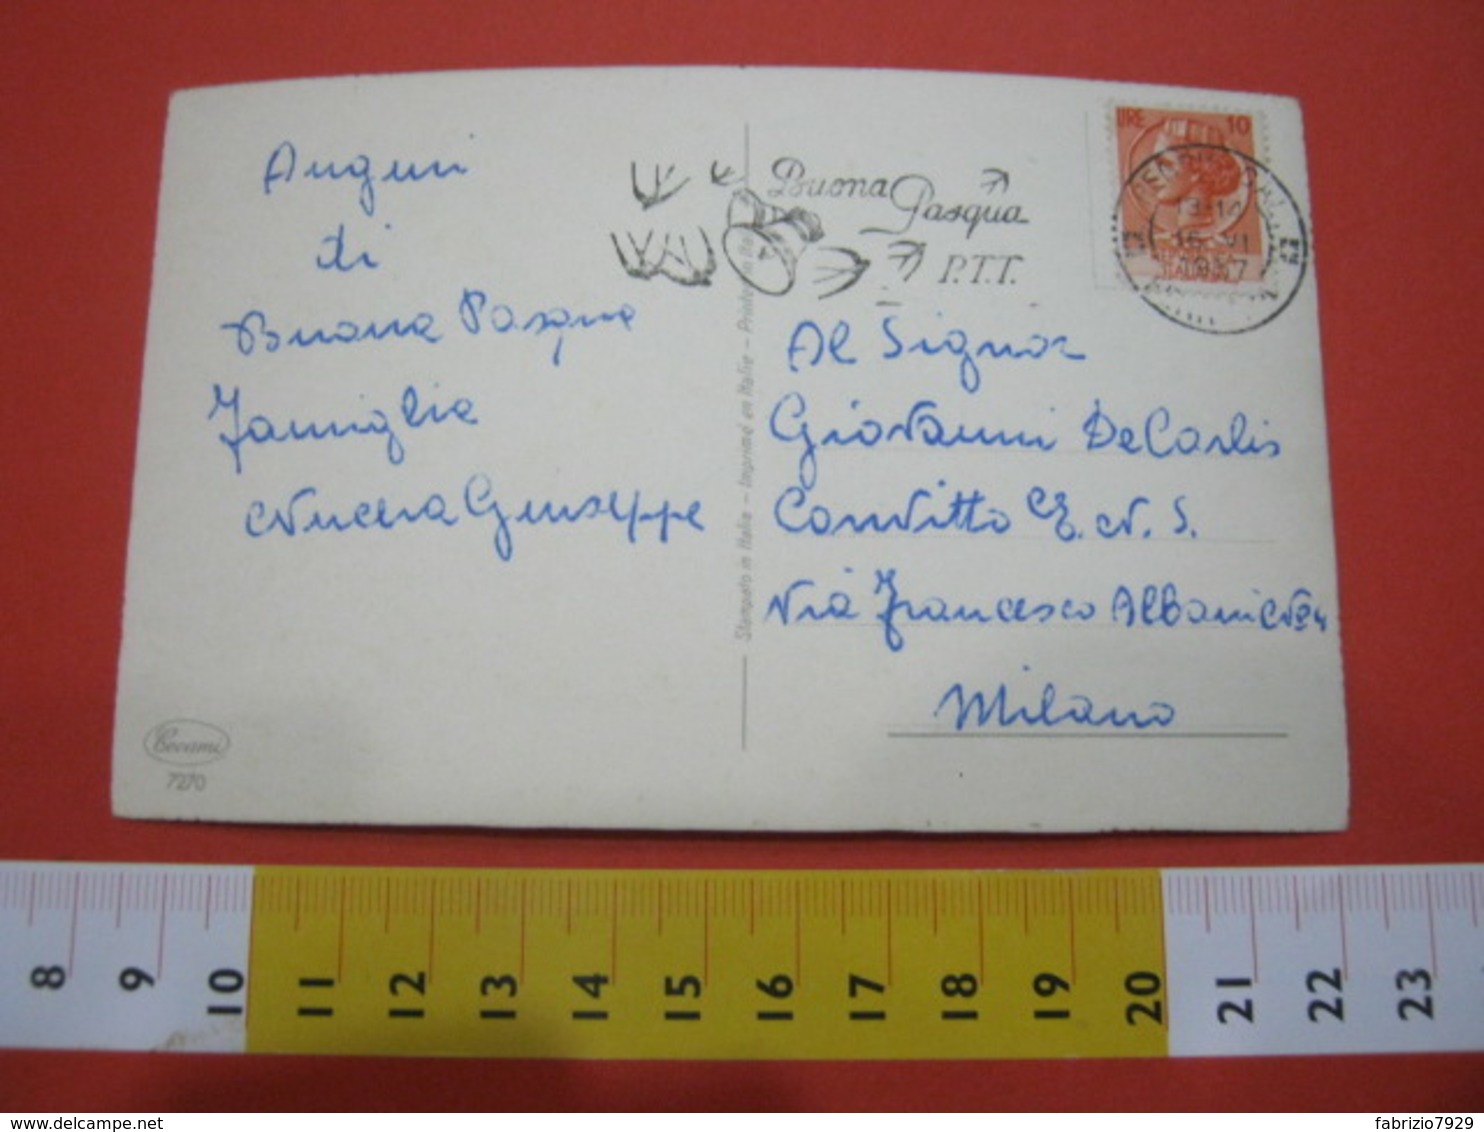 Auguri
di
Buona Pasqua
Famiglia
Nucera Giuseppe
Cecami
7270
Stampato in Italia – Imprimé en Italie – Printed in Ita
Buona Pasqua
P.T.T.
LIRE 10
13-14
1957
Al Signor
Giovanni De Carlis
Convitto E. N. S.
Via Francesco Albani N° 4
Milano
8 9 10 11 12 13 14 15 16 17 18 19 20 21 22 23
delcampe.net
fabrizio7929